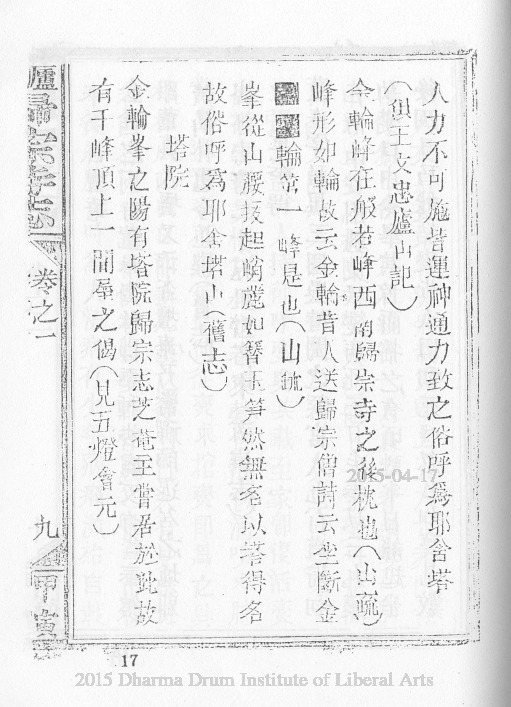 人力不可施皆運神通力致之俗呼為耶舍塔
(俱王文忠廬山記)
金輪峰在般若峰西南歸宗寺之後枕也(山疏)
峰形如輪故云金輪昔人送歸宗僧詩云坐斷金
輪第一峰是也(山疏)
峯從山腰拔起峭麗如簪玉笋然無名以塔得名
故俗呼為耶舍塔山(舊志)
塔院
金輪峯之陽有塔院歸宗志芝菴主嘗居於此故
有千峰頂上一間屋之偈(見五燈會元)
卷之一
九
甲寅
17
2015-04-17
2015 Dharma Drum Institute of Liberal Arts